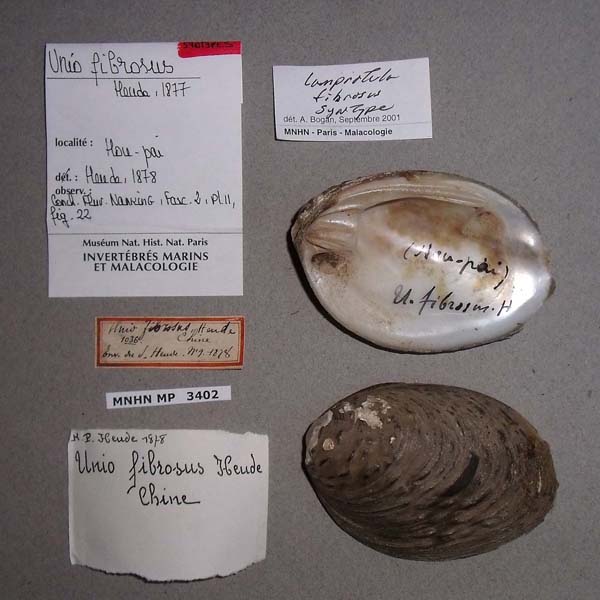 Unio fibrosus
Heude, 1877
localité : Hou-pai
dét. : Heude, 1878
observ. :
Conch. Fluv. Nanking, Fasc. 2, Pl. 11,
fig. 22
Muséum Nat. Hist. Nat. Paris
INVERTÉBRÉS MARINS
ET MALACOLOGIE
Lamprotula
fibrosus
Syntype
dét. A. Bogan, Septembre 2001
MNHN - Paris - Malacologie
(Hou-pai)
U. fibrosus. H
Unio fibrosus, Heude
Chine
Heude. 1878
MNHN MP 3402
R. P. Heude 1878
Unio fibrosus Heude
Chine